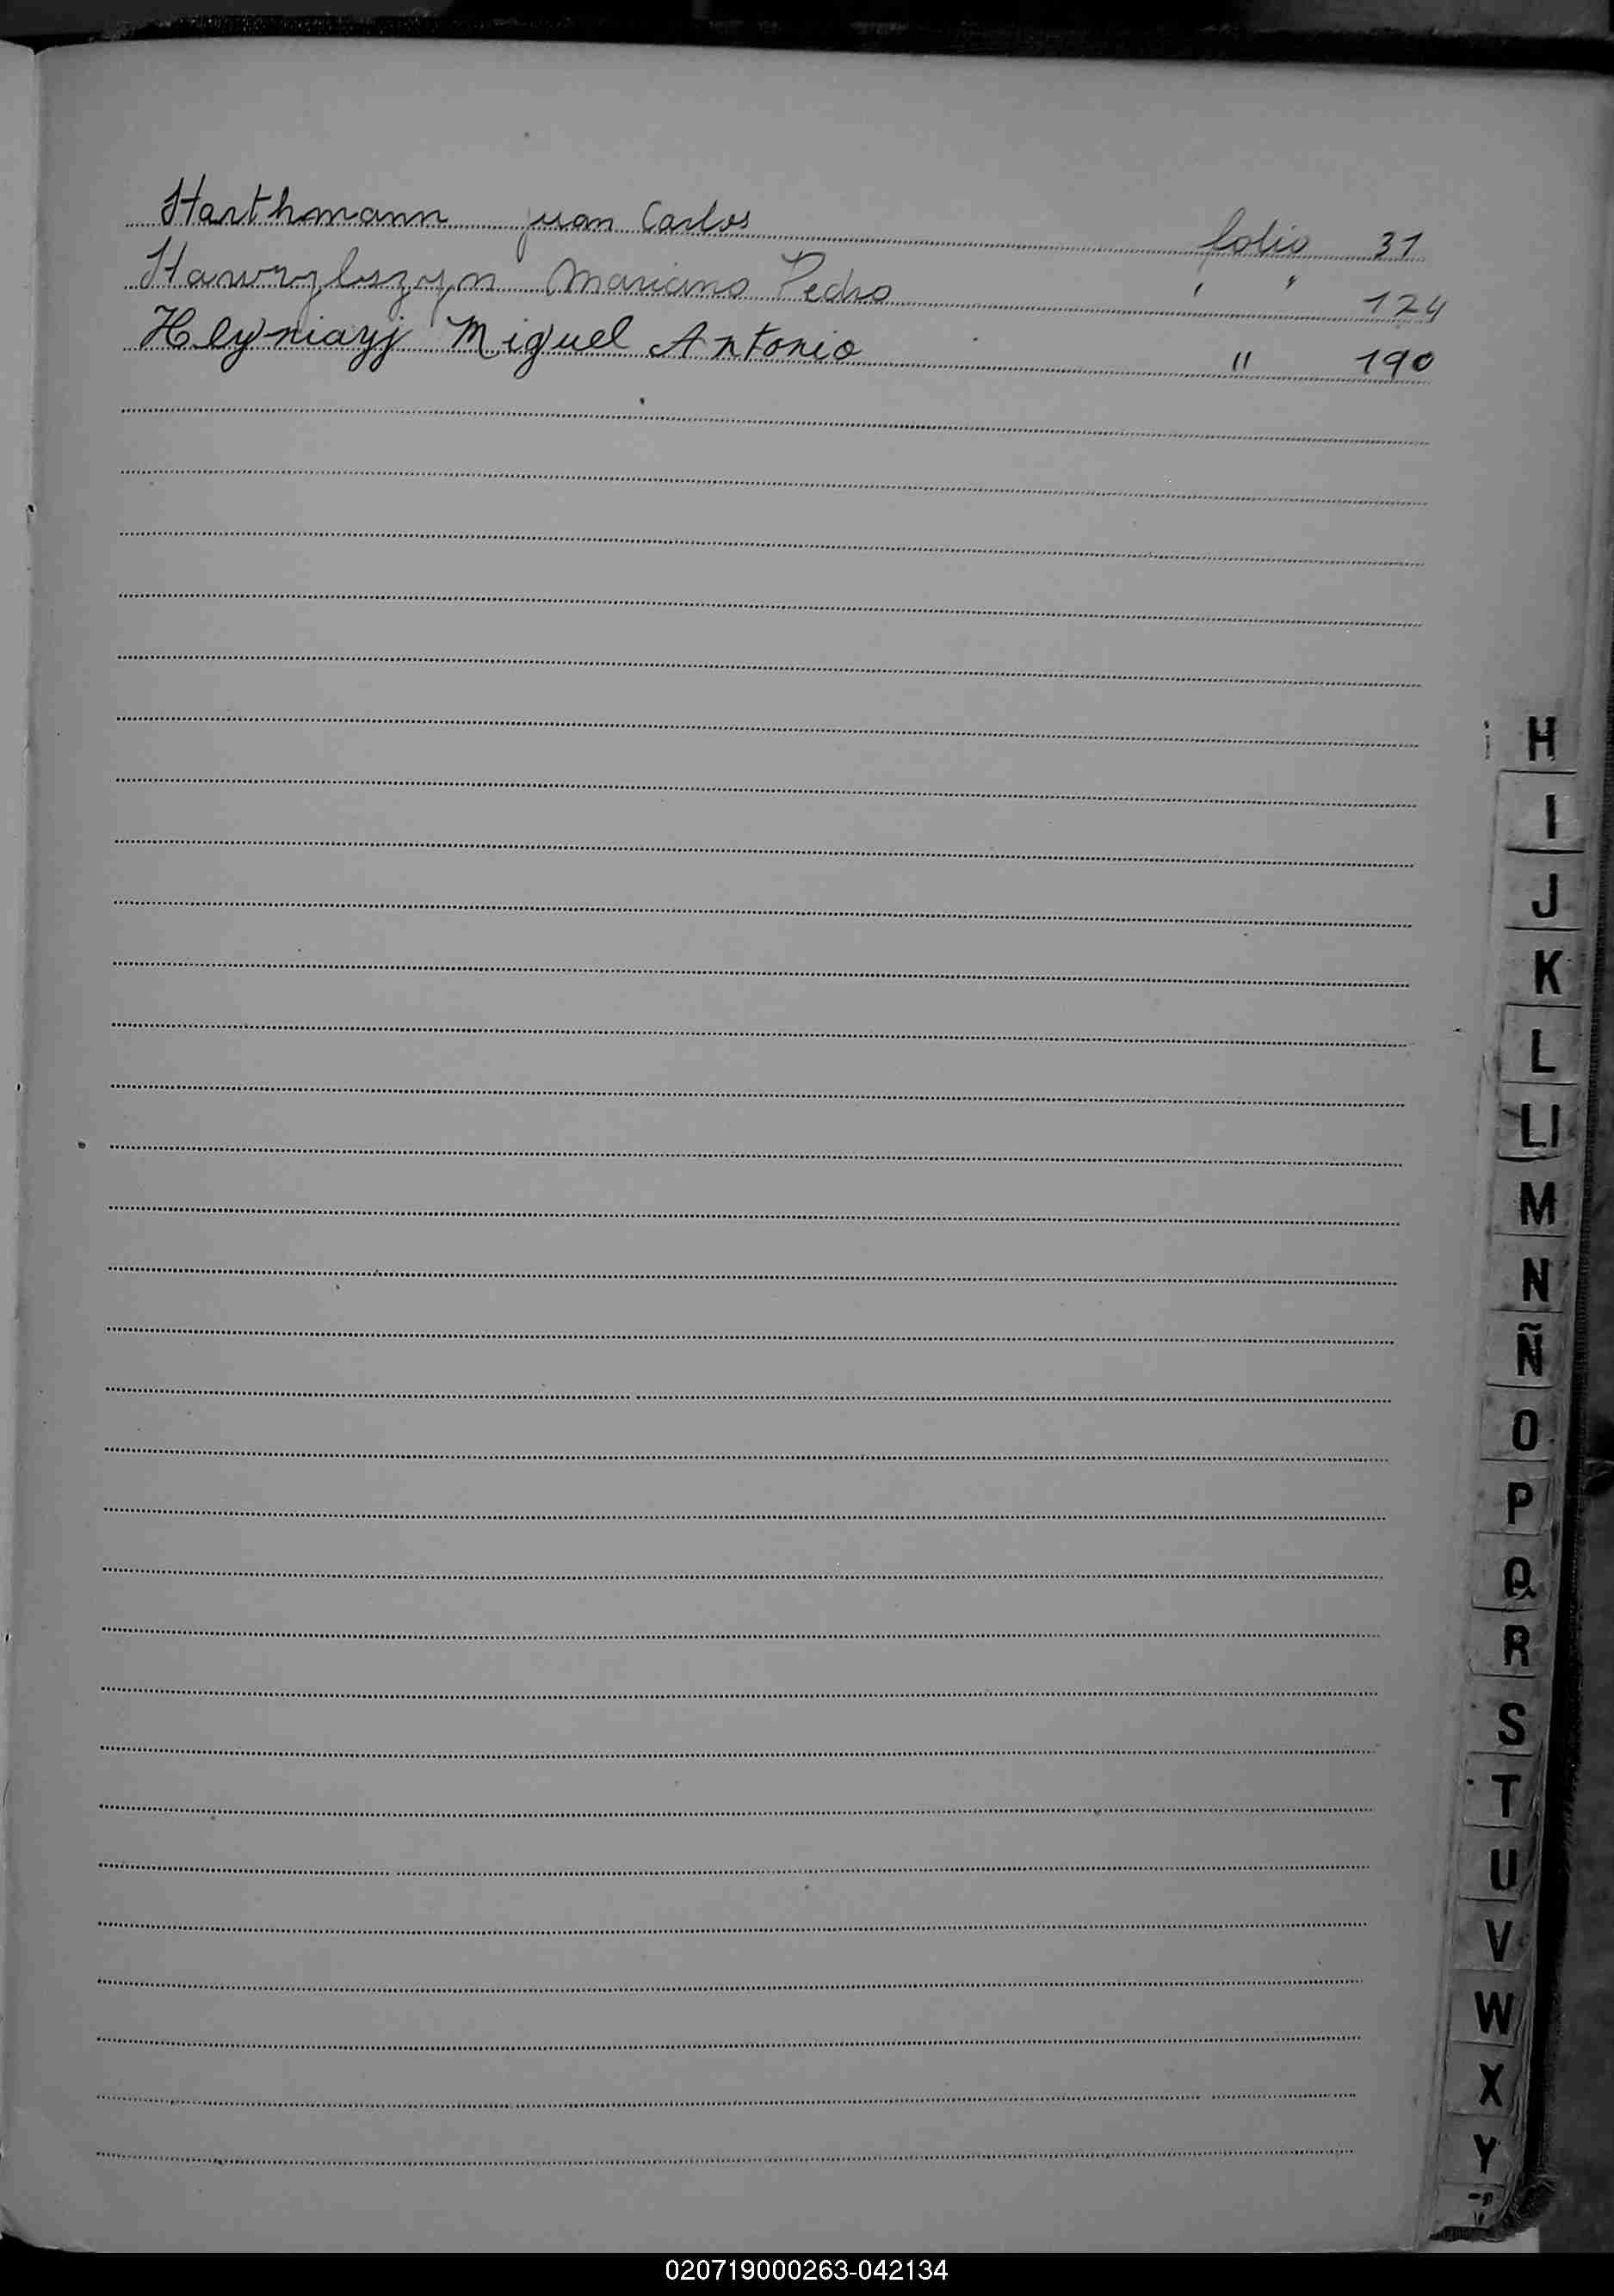 Harthmann juan Carlos folio 31
Hawryluszyn Mariano Pedro " " 124
Hlyniayj Miguel Antonio " 190
H
I
J
K
L
Ll
M
N
Ñ
O
P
Q
R
S
T
U
V
W
X
Y
020719000263-042134